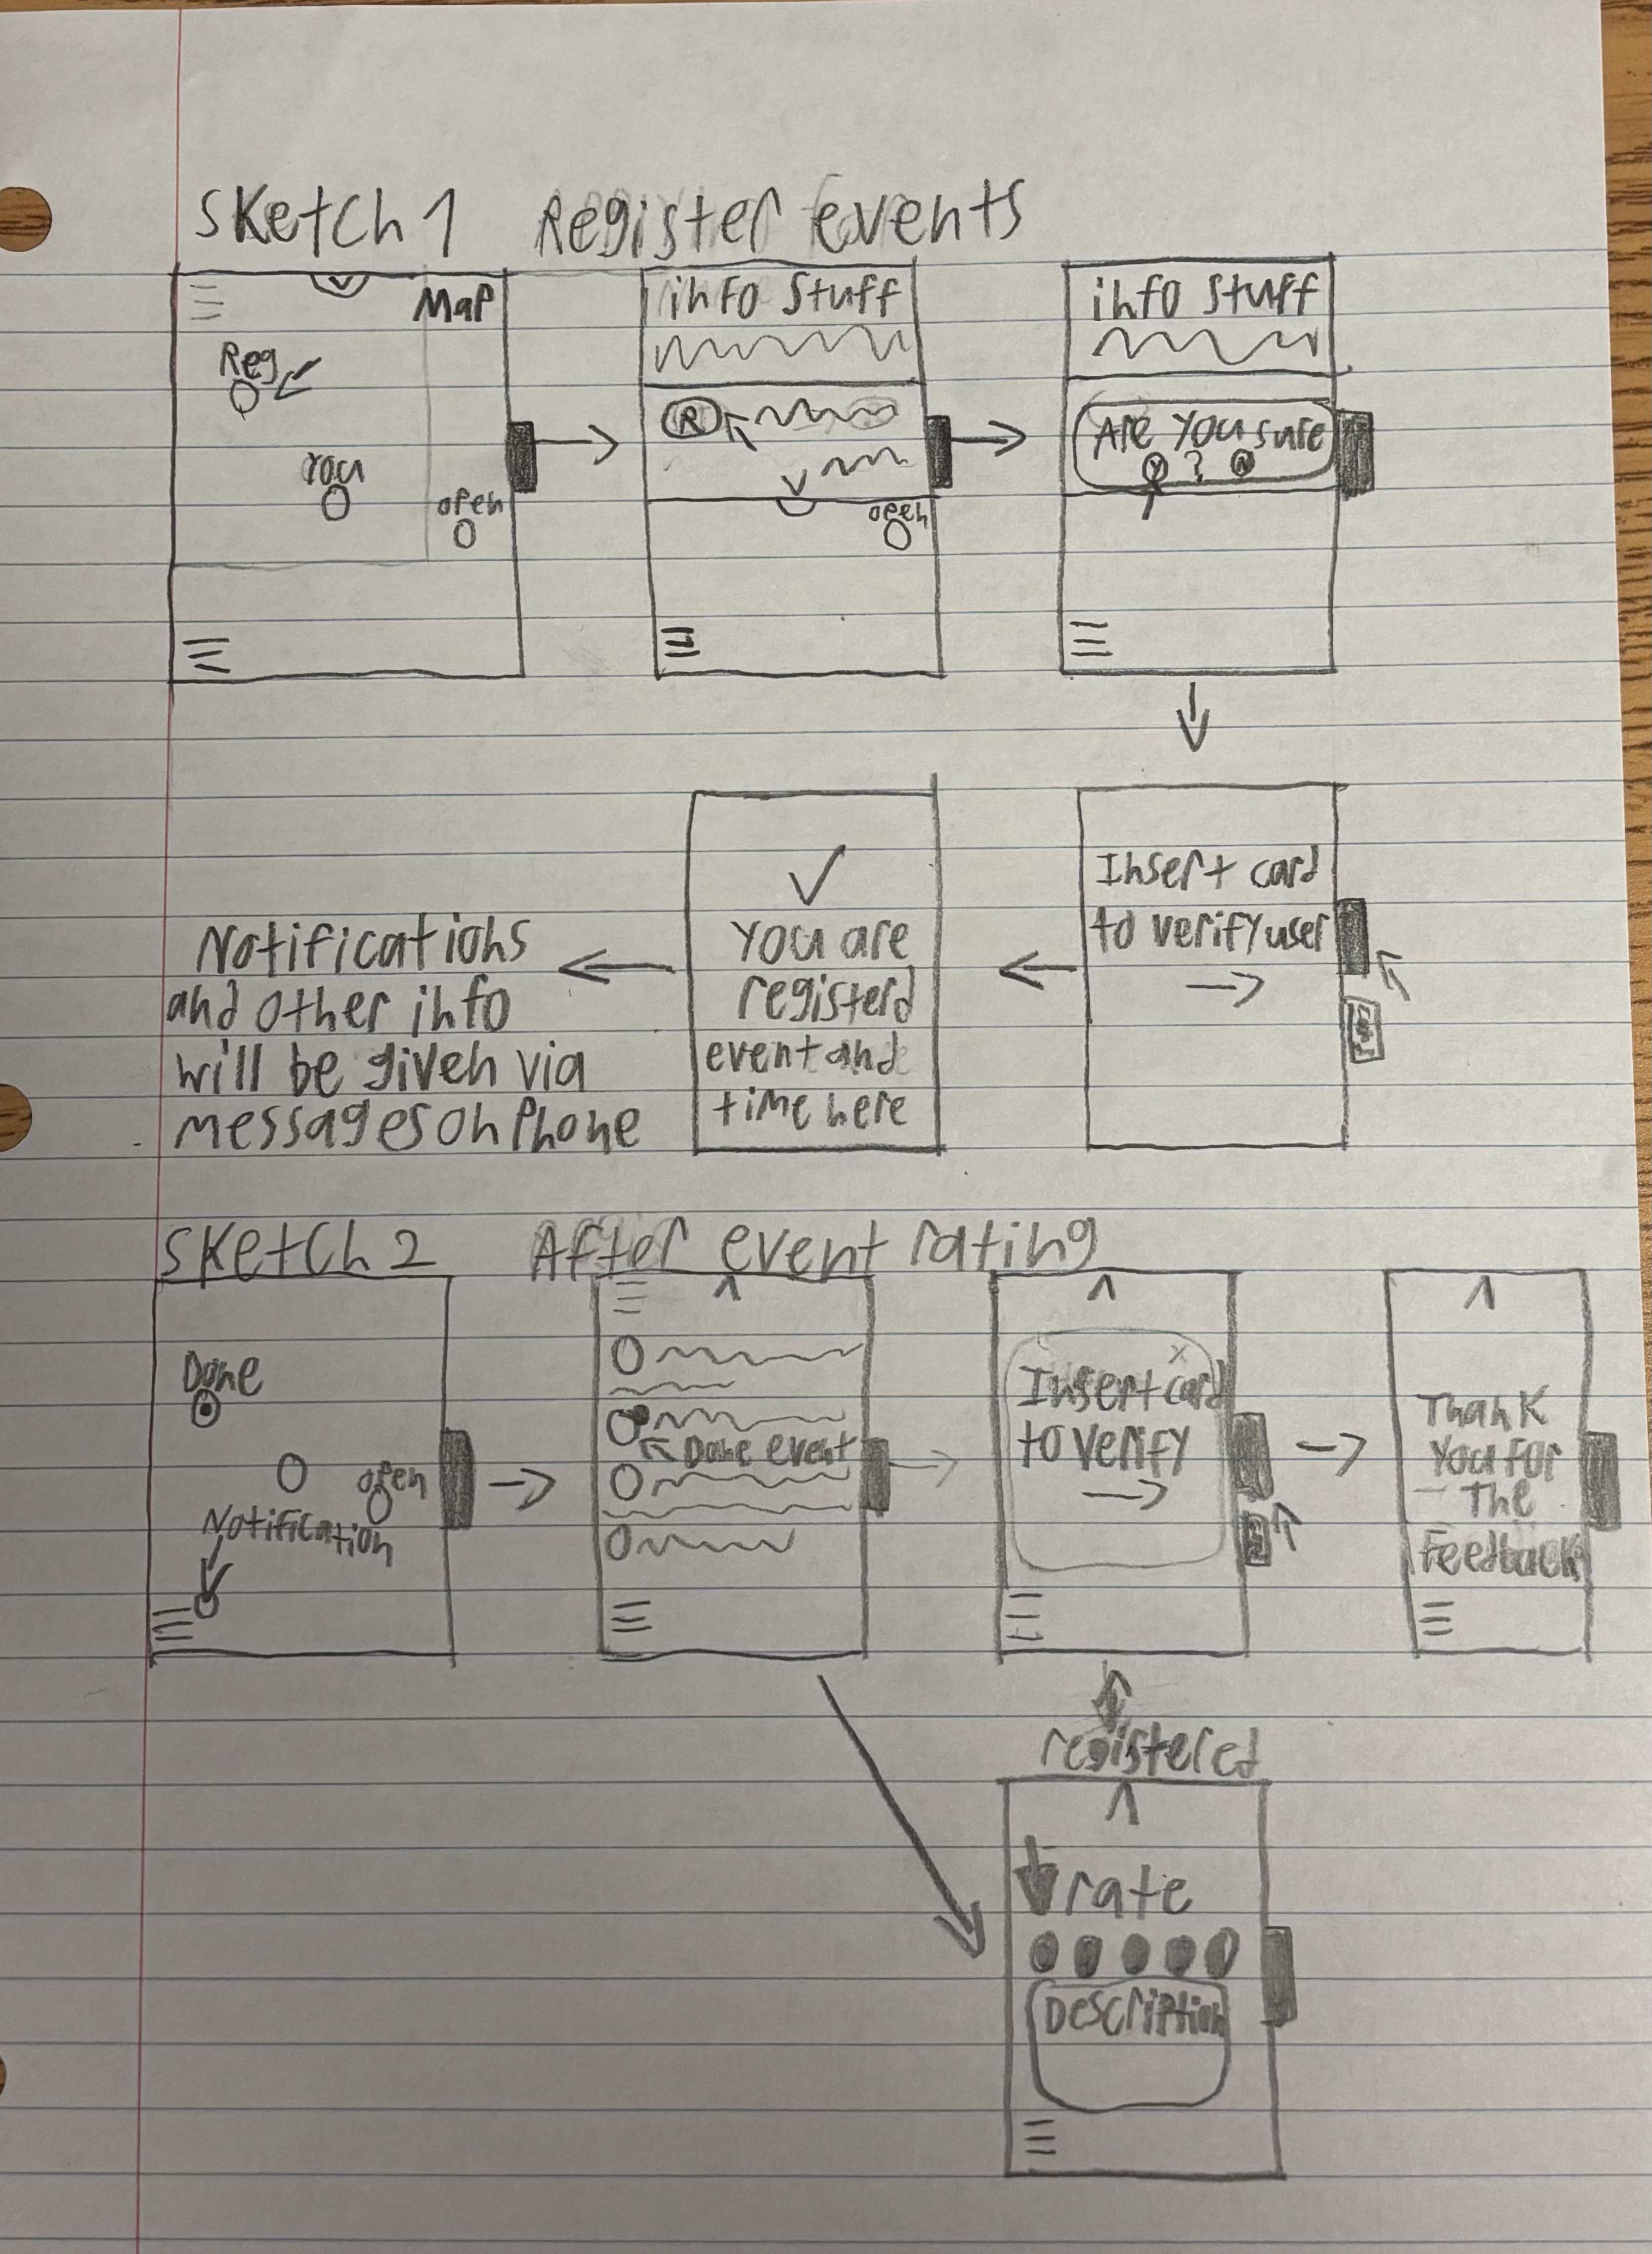 Sketch 1 Register events
Map
Reg
You
open
info stuff
R
open
info stuff
Are you sure
Y ? N
Insert card
to verify user
✓
You are
registerd
event and
time here
Notifications
and other info
will be given via
messages on phone
Sketch 2 After event rating
Done
open
Notification
Done event
X
Insert card
to verify
Thank
You for
The
Feedback
registered
rate
Description